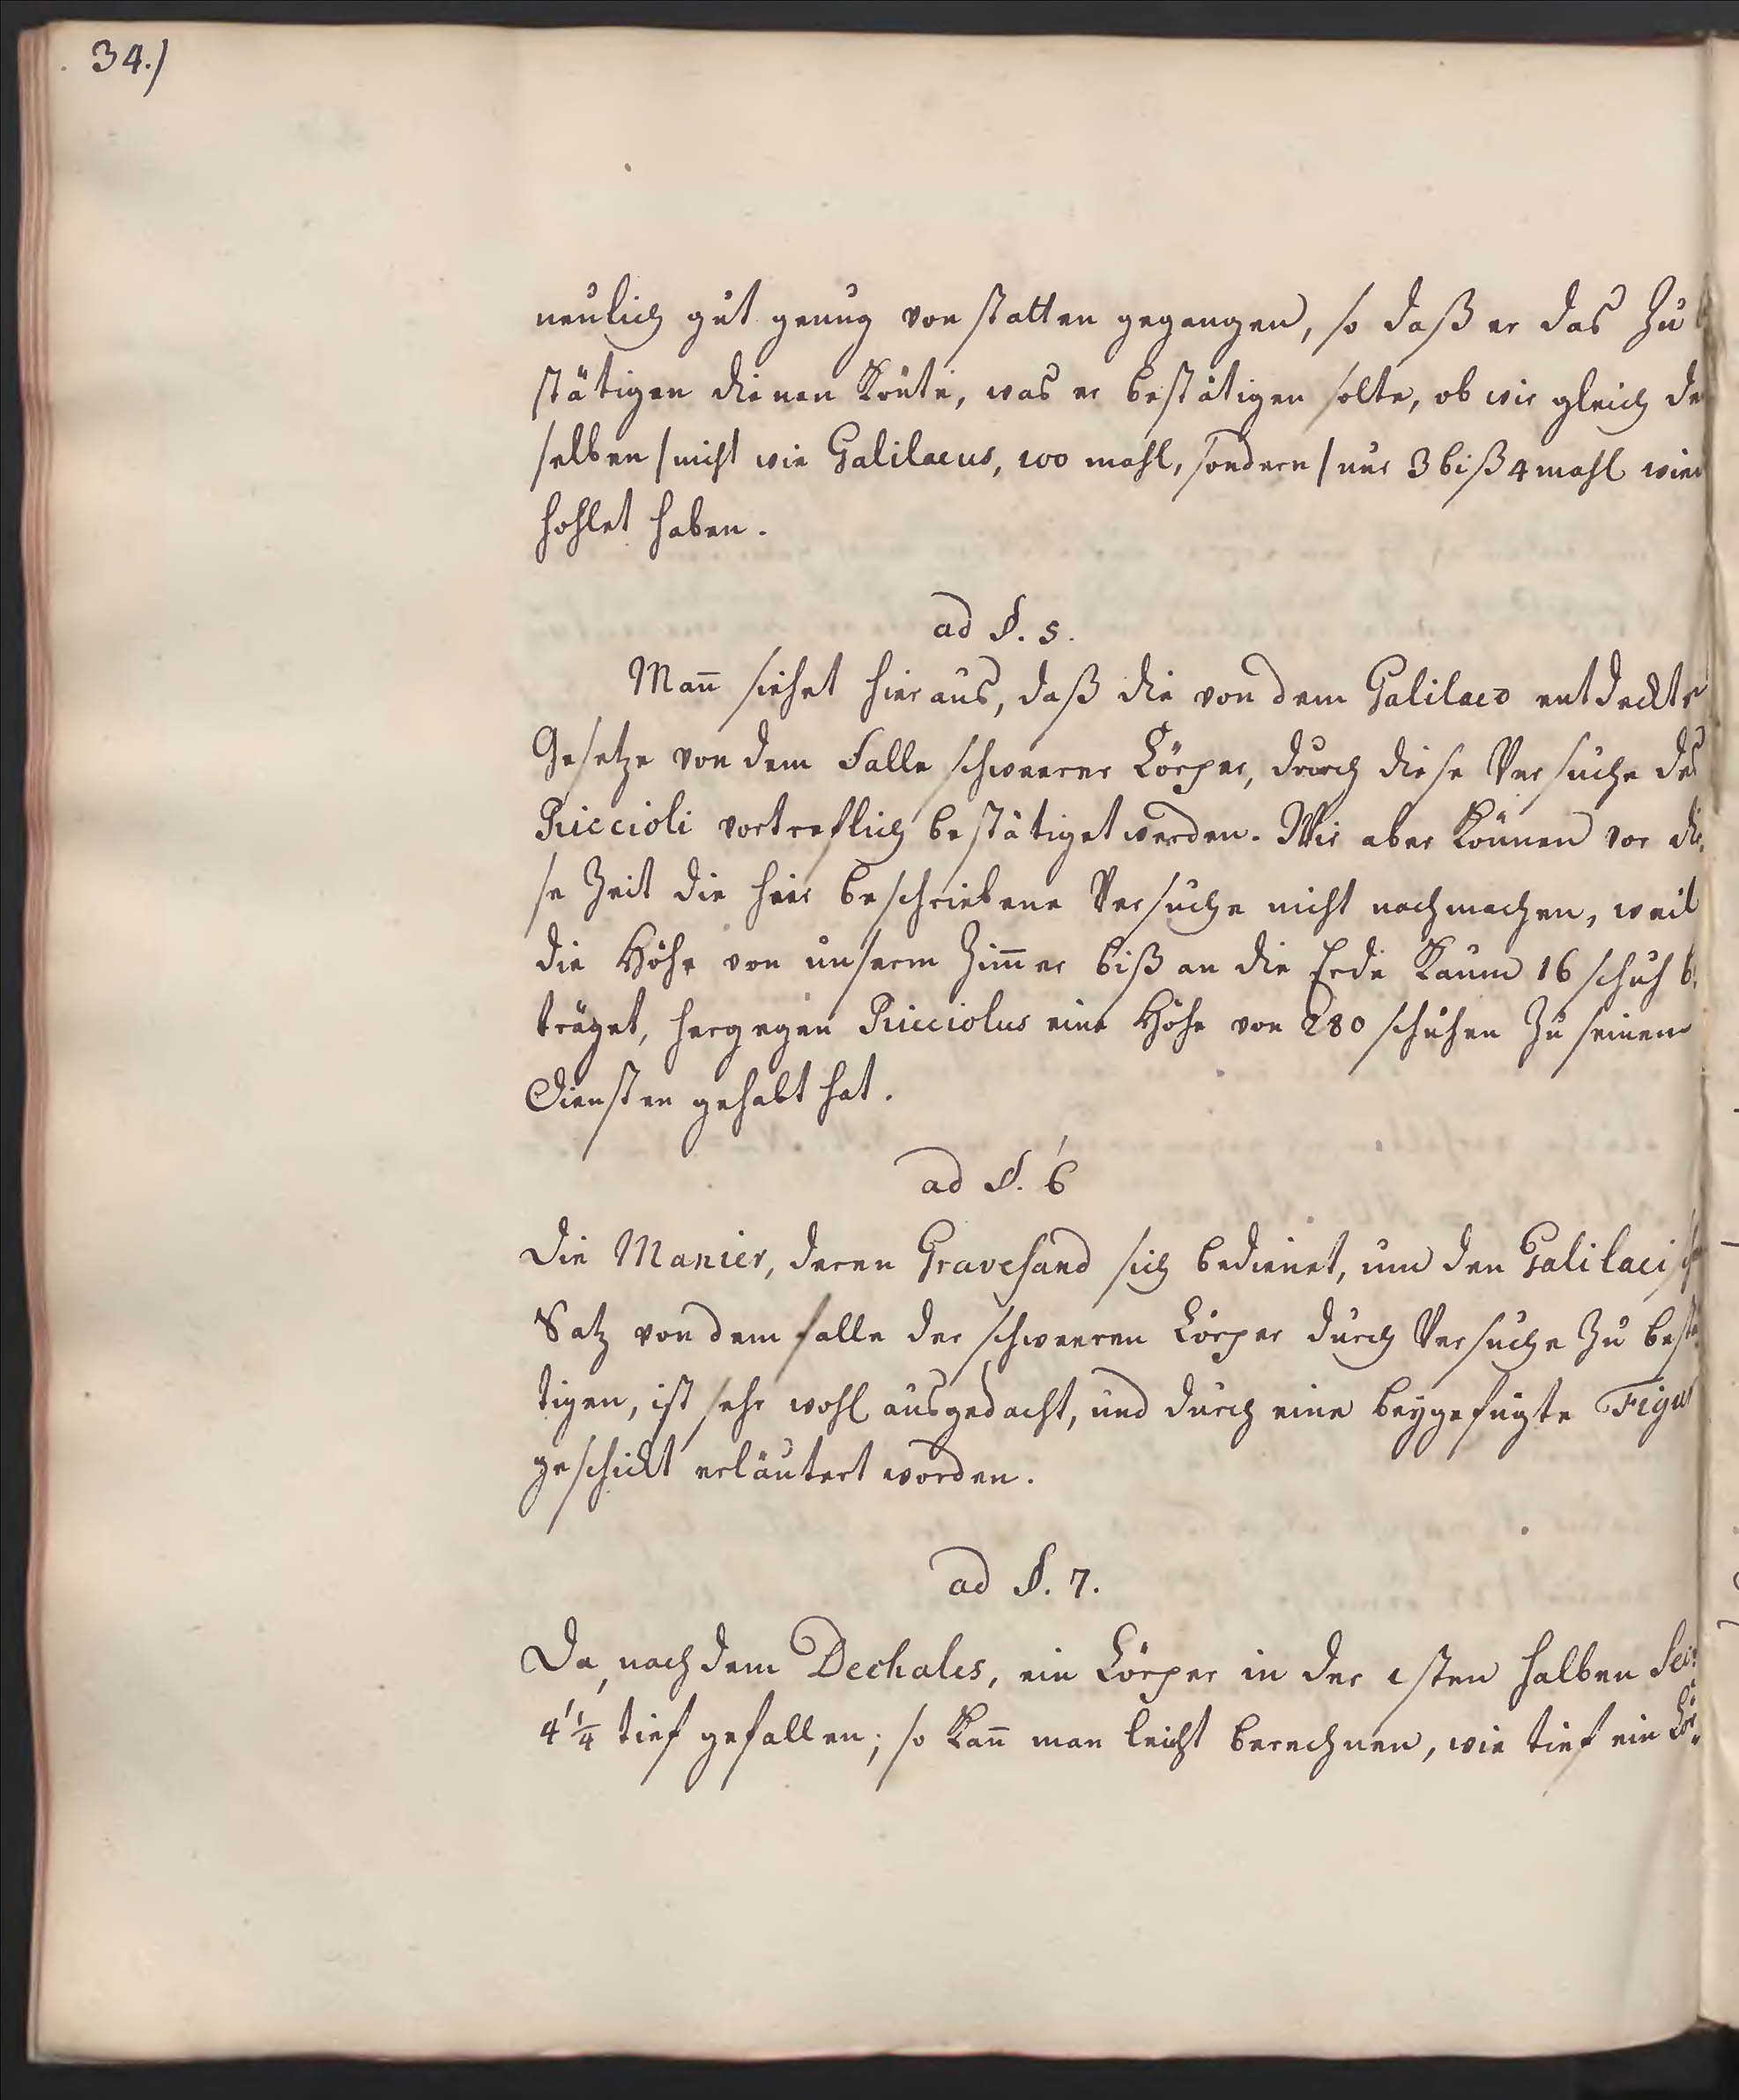 34.)
neulich gut genug von statten gegangen, so daß er das zu
stätigen dienen konte, was er bestätigen solte, ob wir gleich de
selben / nicht wie Galilaeus, 100 mahl, sondern / nur 3 biß 4 mahl wied
hohlet haben.
ad §. 5.
Man̄ siehet hieraus, daß die von dem Galilaeo entdeckte
Gesetze von dem Falle schweerer Cörper, durch diese Versuche des
Riccioli vortreflich bestätiget werden. Wir aber können vor die,
se Zeit die hier beschriebene Versuche nicht nachmachen, weil
die Höhe von unserm Zim̄er biß an die Erde kaum 16 schuh b
träget, hergegen Ricciolus eine Höhe von 280 schuhen zu seinem
Diensten gehabt hat.
ad §. 6
Die Manier, deren Gravesand sich bedienet, um den Galilaeisch
Satz von dem falle der schweeren Cörper durch Versuche zu bestä
tigen, ist sehr wohl ausgedacht, und durch eine beygefügte Figur
geschickt erläutert worden.
ad §. 7.
Da, nach dem Dechales, ein Cörper in der 1sten halben Sec:
4' 1/4 tief gefallen; so kan̄ man leicht berechnen, wie tief ein Cör,,